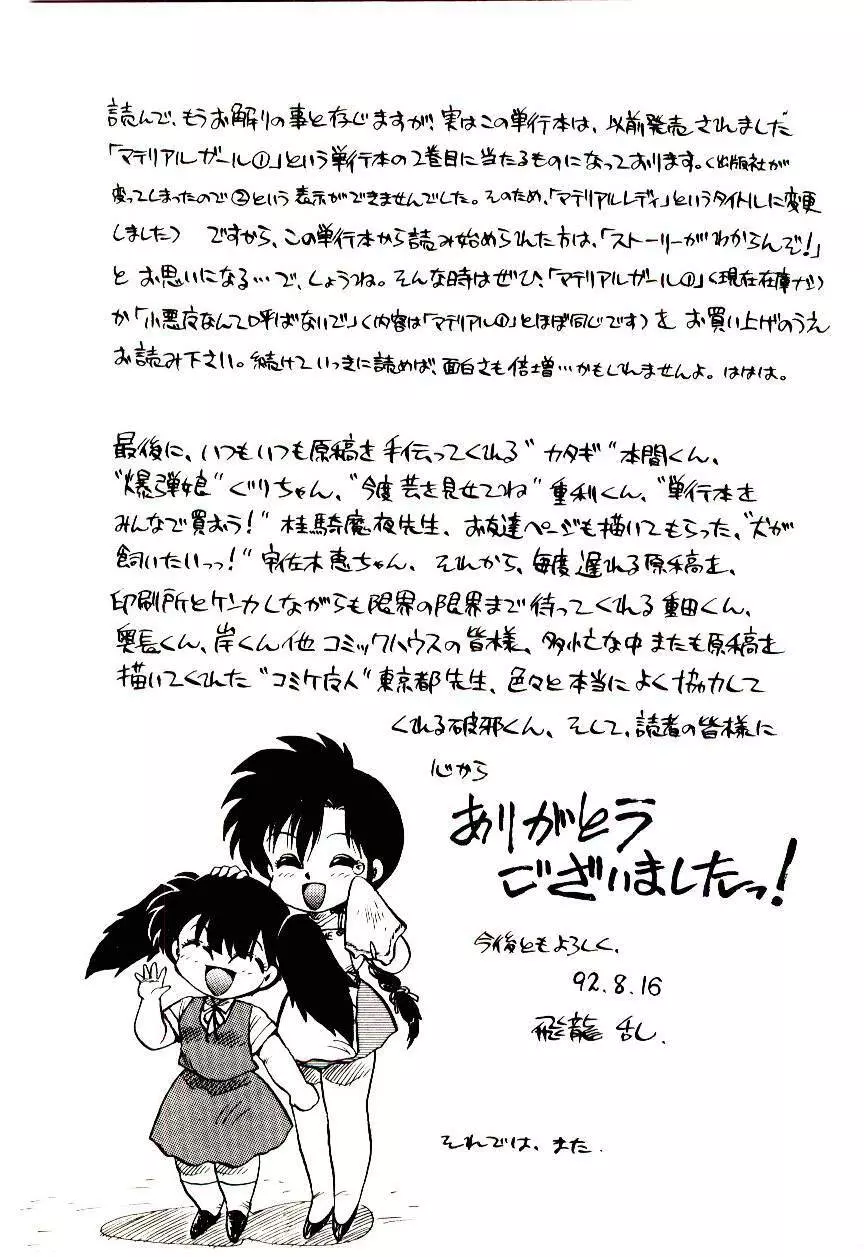 読んで、もうお解りの事と存じますが、実はこの単行本は、以前発売されました
「マテリアルガール①」という単行本の2巻目に当たるものになっております。(出版社が
変ってしまったので②という表示ができませんでした。そのため、「マテリアルレディ」というタイトルに変更
しました) ですから、この単行本から読み始められた方は、「ストーリーがわからんぞ!」
と お思いになる…で、しょうね。そんな時はぜひ、「マテリアルガール①」(現在在庫ナシ)
か「小悪夜なんて呼ばないで」(内容は「マテリアル①」とほぼ同じです)を お買い上げのうえ
お読み下さい。続けていっきに読めば、面白さも倍増…かもしれませんよ。ははは。
最後に、いつもいつも原稿を手伝ってくれる"カタギ"本間くん、
"爆弾娘"ぐりちゃん、"今度芸を見せてね"重利くん、"単行本を
みんなで買おう!"桂騎魔夜先生、お友達ページも描いてもらった、"犬が
飼いたいっっ!"宇佐木恵ちゃん、それから、毎度遅れる原稿を、
印刷所とケンカしながらも限界の限界まで待ってくれる重田くん、
奥長くん、岸くん他コミックハウスの皆様、多忙な中またも原稿を
描いてくれた"コミケ友人"東京都先生、色々と本当によく協力して
くれる破邪くん、そして、読者の皆様に
心から
ありがとう
ございましたっ!
今後ともよろしく。
92.8.16
飛龍 乱
それでは、また.